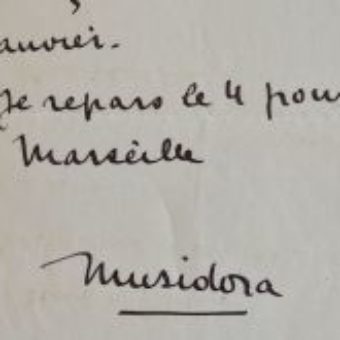 anvier.
Je repars le 4 pour
Marseille
Musidora